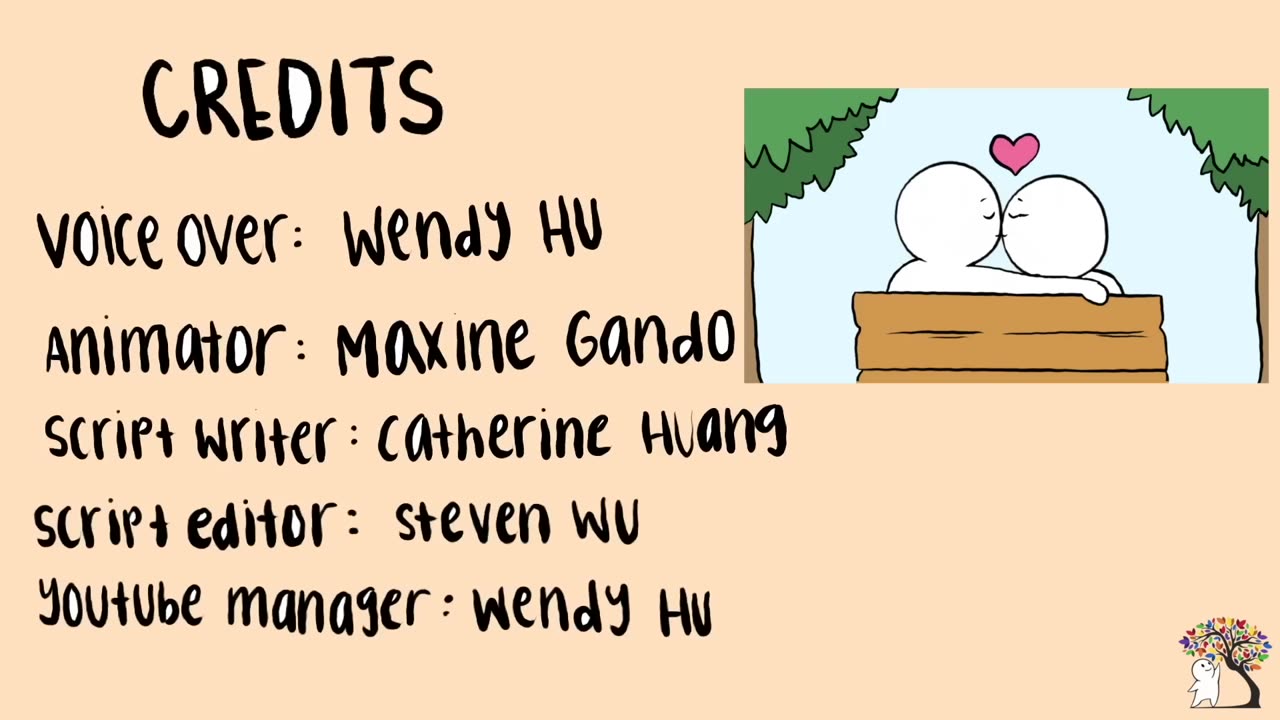 CREDITS
Voice over: Wendy Hu
Animator: Maxine Gando
Script writer: Catherine Huang
Script editor: Steven Wu
Youtube manager: Wendy Hu